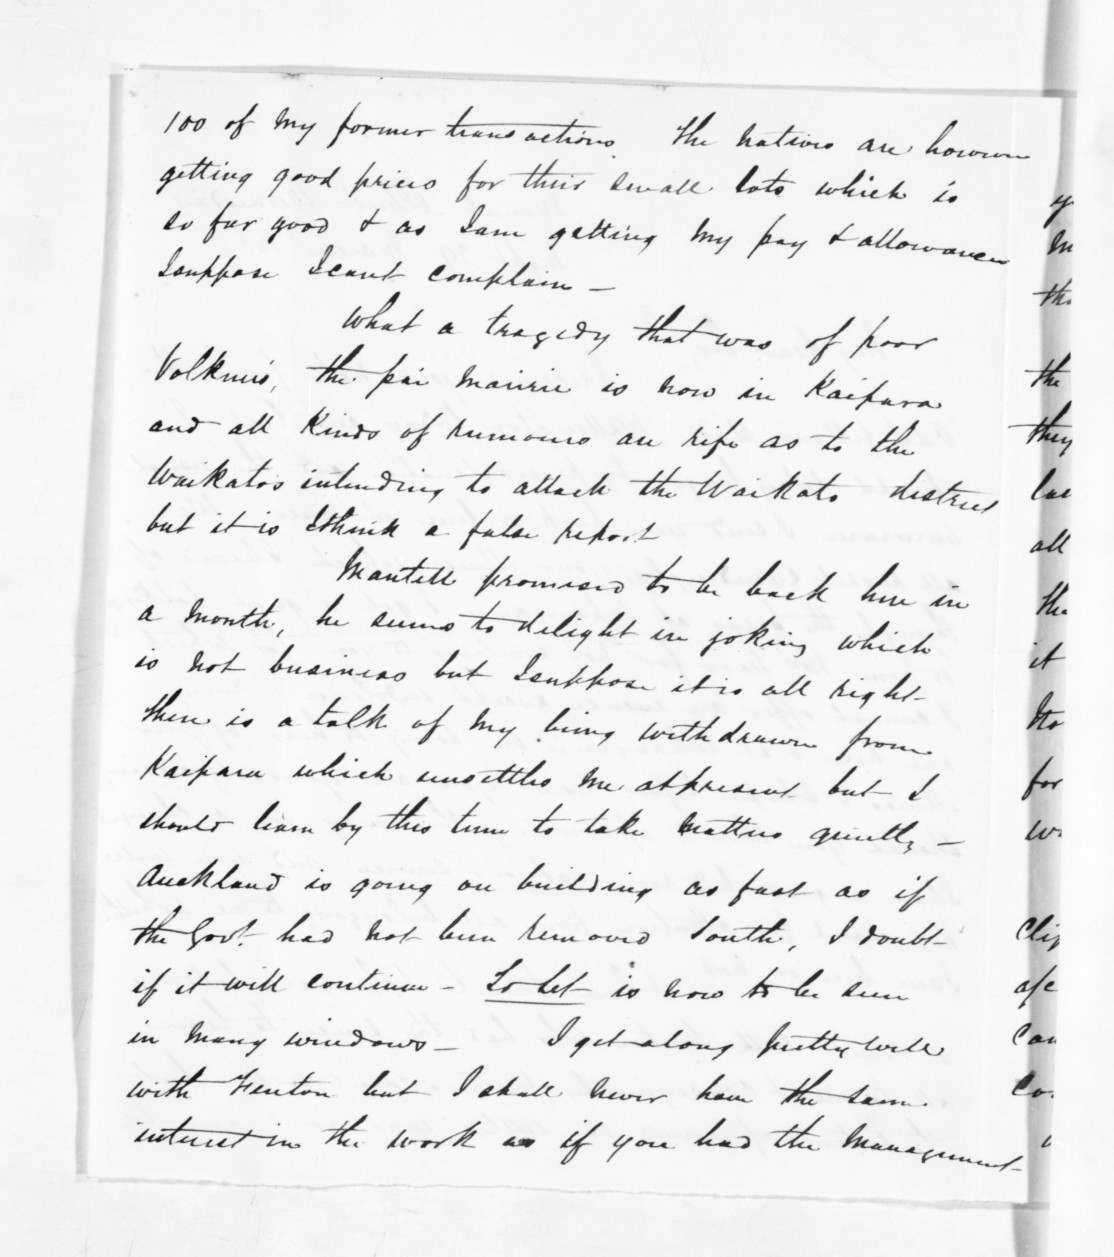 100 of my former transactions. The natives are however
getting good prices for their small lots which is
so far good & as I am getting my pay & allowances
I suppose I cant complain -
What a tragedy that was of poor
Volkners, the pai Mairire is now in Kaipara
and all kinds of rumours are rife as to the
Waikatos intending to attack the Waikato district
but it is I think a false report
Mantell promised to be back here in
a month, he seems to delight in joking which
is not business but I suppose it is all right
there is a talk of my being withdrawn from
Kaipara which unsettles me at present but I
should learn by this time to take matters quietly -
Auckland is going on building as fast as if
the Govt. had not been removed South, I doubt
if it will continue - To Let is now to be seen
in many windows - I get along pretty well
with Fenton but I shall never have the same
interest in the work as if you had the management